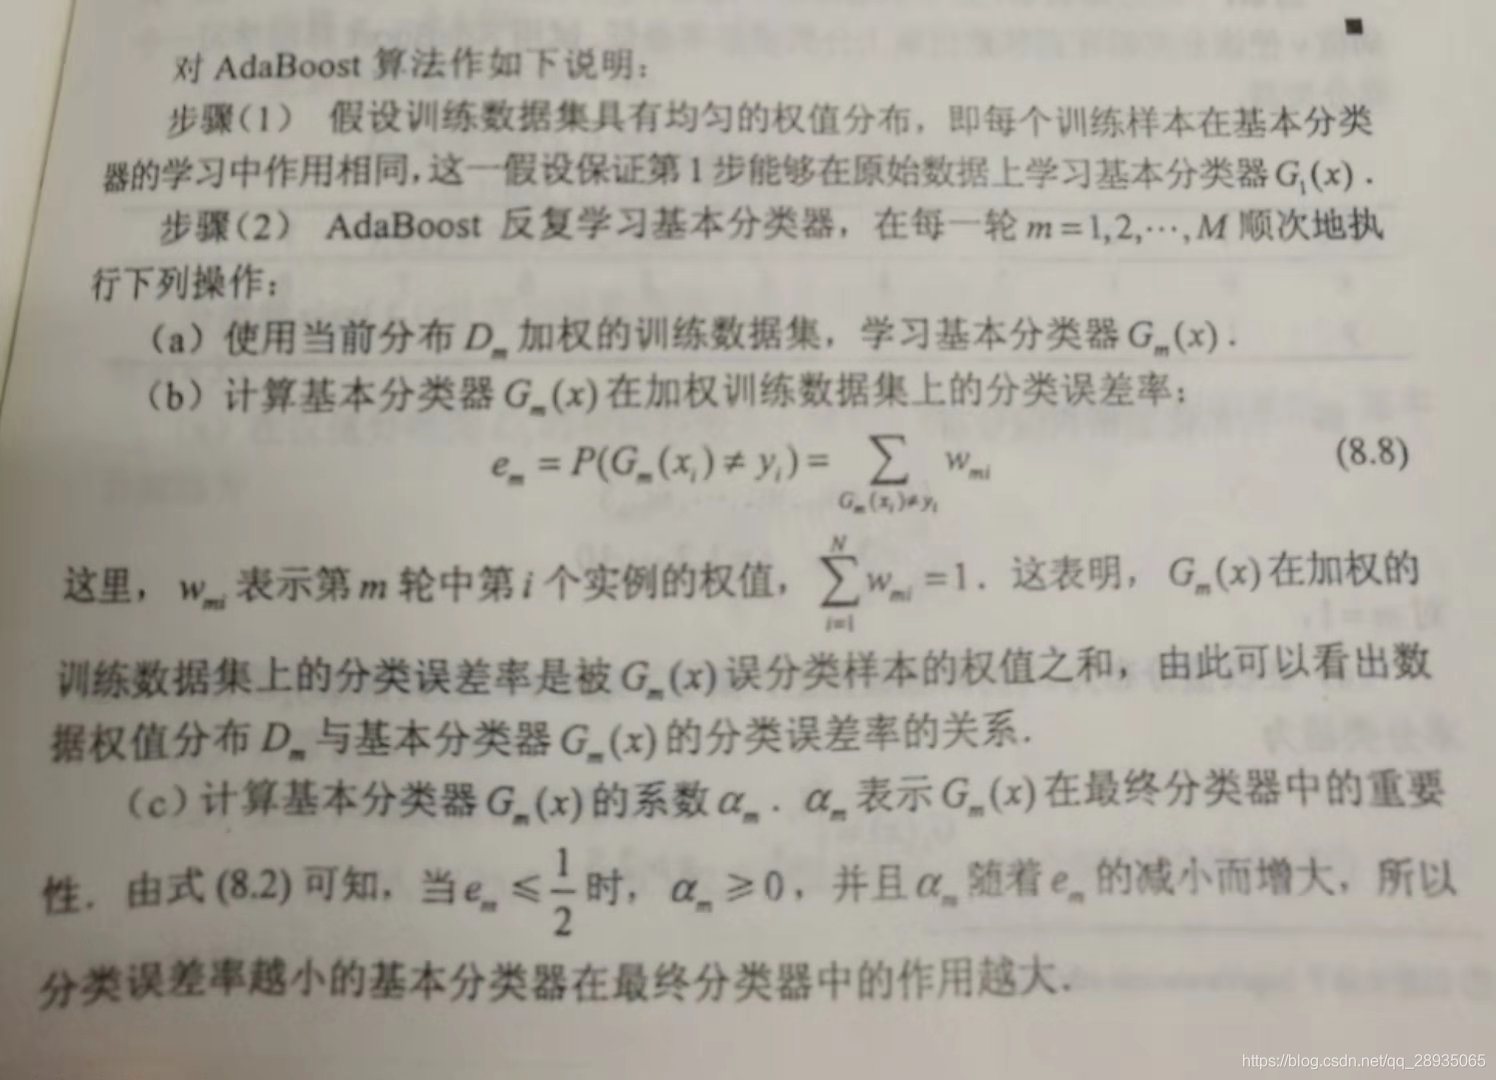 对 AdaBoost 算法作如下说明：
步骤（1） 假设训练数据集具有均匀的权值分布，即每个训练样本在基本分类
器的学习中作用相同，这一假设保证第 1 步能够在原始数据上学习基本分类器 G₁(x)．
步骤（2） AdaBoost 反复学习基本分类器，在每一轮 m = 1,2,⋯,M 顺次地执
行下列操作：
（a）使用当前分布 Dₘ 加权的训练数据集，学习基本分类器 Gₘ(x)．
（b）计算基本分类器 Gₘ(x) 在加权训练数据集上的分类误差率：
eₘ = P(Gₘ(xᵢ) ≠ yᵢ) = ∑_{Gₘ(xᵢ)≠yᵢ} wₘᵢ (8.8)
这里，wₘᵢ 表示第 m 轮中第 i 个实例的权值，∑_{i=1}^{N} wₘᵢ = 1．这表明，Gₘ(x) 在加权的
训练数据集上的分类误差率是被 Gₘ(x) 误分类样本的权值之和，由此可以看出数
据权值分布 Dₘ 与基本分类器 Gₘ(x) 的分类误差率的关系．
（c）计算基本分类器 Gₘ(x) 的系数 αₘ．αₘ 表示 Gₘ(x) 在最终分类器中的重要
性．由式 (8.2) 可知，当 eₘ ⩽ 1/2 时，αₘ ⩾ 0，并且 αₘ 随着 eₘ 的减小而增大，所以
分类误差率越小的基本分类器在最终分类器中的作用越大．
https://blog.csdn.net/qq_28935065